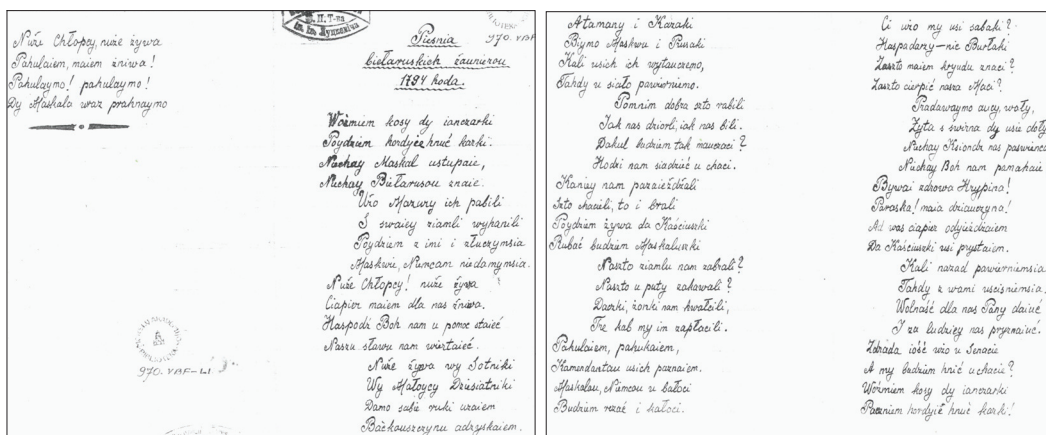 Nuże Chłopcy, nuże żywa
Pahulaiem, maiem żniwa!
Pahulaymo! pahulaymo!
Dy Maskala wraz prahnaymo
970. VBF-LI
B.П. Т-ва
ім. Ів. Луцкевіча
970. VBF
Pieśnia
biełaruskich żaunierou
1794 hoda.
Woźmiem kosy dy ianczarki
Poydziem hordyie hnuć karki.
Niechay Maskal ustupaie,
Niechay Biełarusou znaie.
Użo Mazury ich pabili
I swaiey ziamli wyhanili
Poydziem z imi i złuczymsia
Maskwie, Niemcam niedamymsia.
Nuże Chłopcy! nuże żywa
Ciapier maiem dla nas żniwa.
Haspodź Boh nam u pomoc staieć
Naszu sławu nam wiertaieć.
Nuże żywa wy Sotniki
Wy Małoycy Dziesiatniki
Damo sabie ruki uzaiem
Baćkouszczynu adzyskaiem.
Atamany i Kazaki
Biymo Maskwu i Prusaki
Kali usich ich wytauczemo,
Tahdy u siało pawierniemo.
Pomnim dobra szto rabili
Jak nas dziorli, iak nas bili.
Dakul budziem tak mauczaci?
Hodzi nam siadzieć u chaci.
Kaniey nam pazaieżdżali
Szto chacieli, to i brali
Poydziem żywa da Kaściuszki
Rubać budziem Maskaluszki
Naszto ziamlu nam zabrali?
Naszto u puty zakawali?
Daczki, żonki nam kwałcili,
Tre kab my im zapłacili.
Pahulaiem, pahukaiem,
Kamendantau usich paznaiem.
Maskalou, Niemcou u bałoci
Budziem rezać i kałoci.
Ci użo my usi sabaki?
Haspadarzy – nie Burłaki
Zaszto maiem kryudu znaci?
Zaszto cierpić nasza Maci?
Pradawaymo aucy, wały,
Żyta z swirna dy usie doły
Niechay Ksiondz nas paswiencaie
Niechay Boh nam pamahaie
Bywai zdarowa Hrypina!
Paraska! maia dziauczyna!
Ad was ciapier odjeżdżaiem
Da Kaściuszki usi prystaiem.
Kali nazad pawierniemsia
Tahdy z wami uscisniemsia.
Wolnaść dla nas Pany daiuć
I za ludziey nas pryznaiuć.
Zdrada iość użo u Senacie
A my budziem hnić u chacie?
Woźmiem kosy dy ianczarki
Paczniem hordyie hnuć karki!